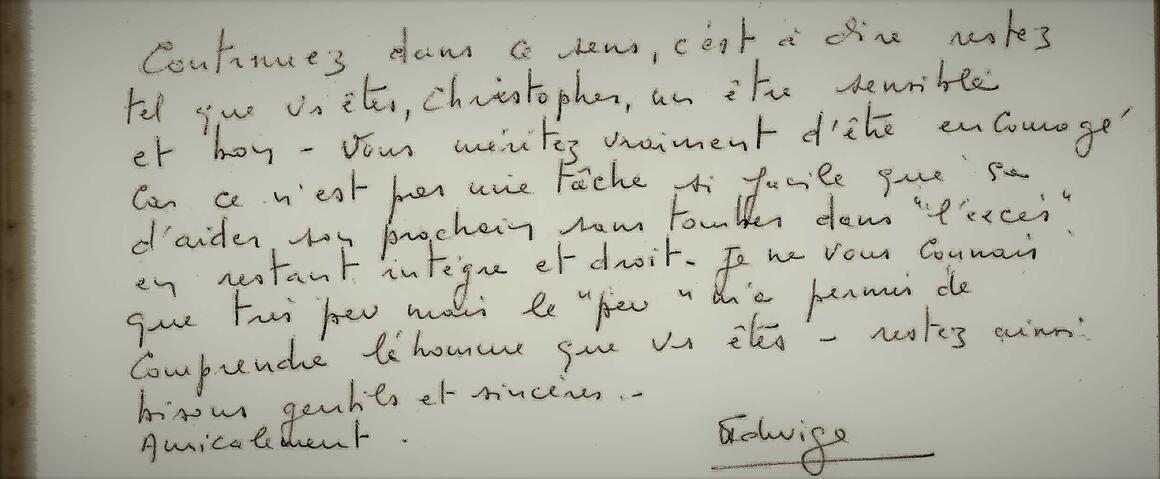 Continuez dans ce sens, c'est à dire restez
tel que vs êtes, Christopher, un être sensible
et bon - Vous méritez vraiment d'être encouragé
Car ce n'est pas une tâche si facile que ça
d'aider son prochain sans tomber dans "l'excès"
en restant intègre et droit. Je ne vous connais
que très peu mais le "peu" m'a permis de
Comprendre l'homme que vs êtes - restez ainsi
bisous gentils et sincères.-
Amicalement.
Edwige